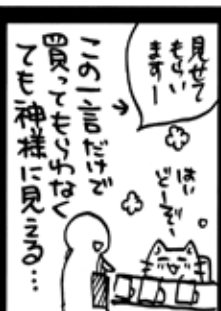 見せて
もらい
ますー
はい
どーぞー
この一言だけで
買ってもらわなく
ても神様に見える…